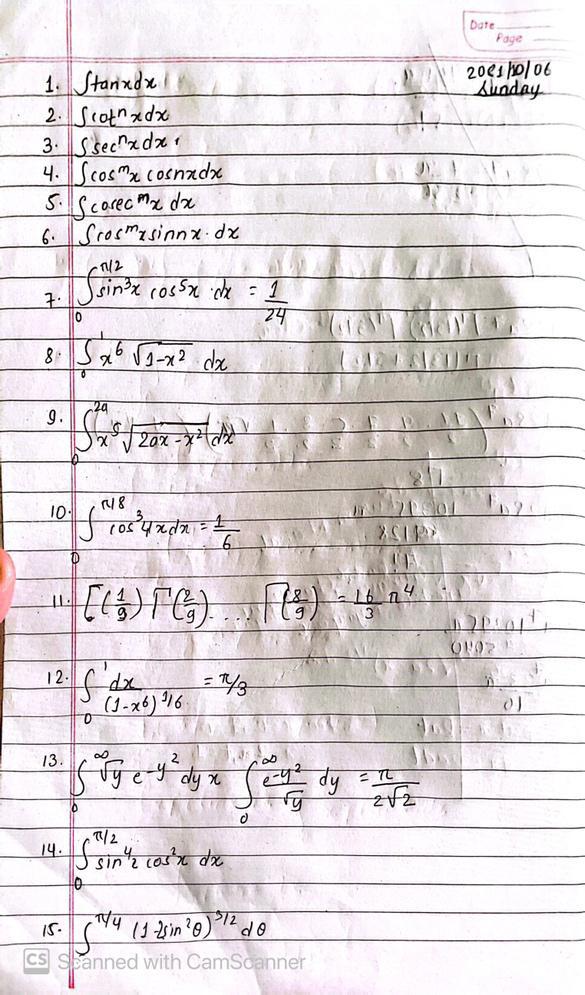 Date
Page
2021/10/06
Sunday
1. ∫tanxdx
2. ∫cotⁿxdx
3. ∫secⁿxdx
4. ∫cosᵐx cosnxdx
5. ∫cosecᵐx dx
6. ∫cosᵐxsinnx·dx
7. ∫₀^π/2 sin³x cos⁵x·dx = 1/24
8. ∫₀^1 x⁶ √1-x² dx
9. ∫₀^2a x⁵ √2ax-x² dx
10. ∫₀^π/8 cos³4xdx = 1/6
11. Γ(1/9) Γ(2/9).... Γ(8/9) = 16/3 π⁴
12. ∫₀^1 dx/(1-x⁶)^1/6 = π/3
13. ∫₀^∞ √y e-y² dy x ∫₀^∞ e-y²/√y dy = π/2√2
14. ∫₀^π/2 sin⁴x cos²x dx
15. ∫^π/4 (1-2sin²θ)^3/2 dθ
CS Scanned with CamScanner